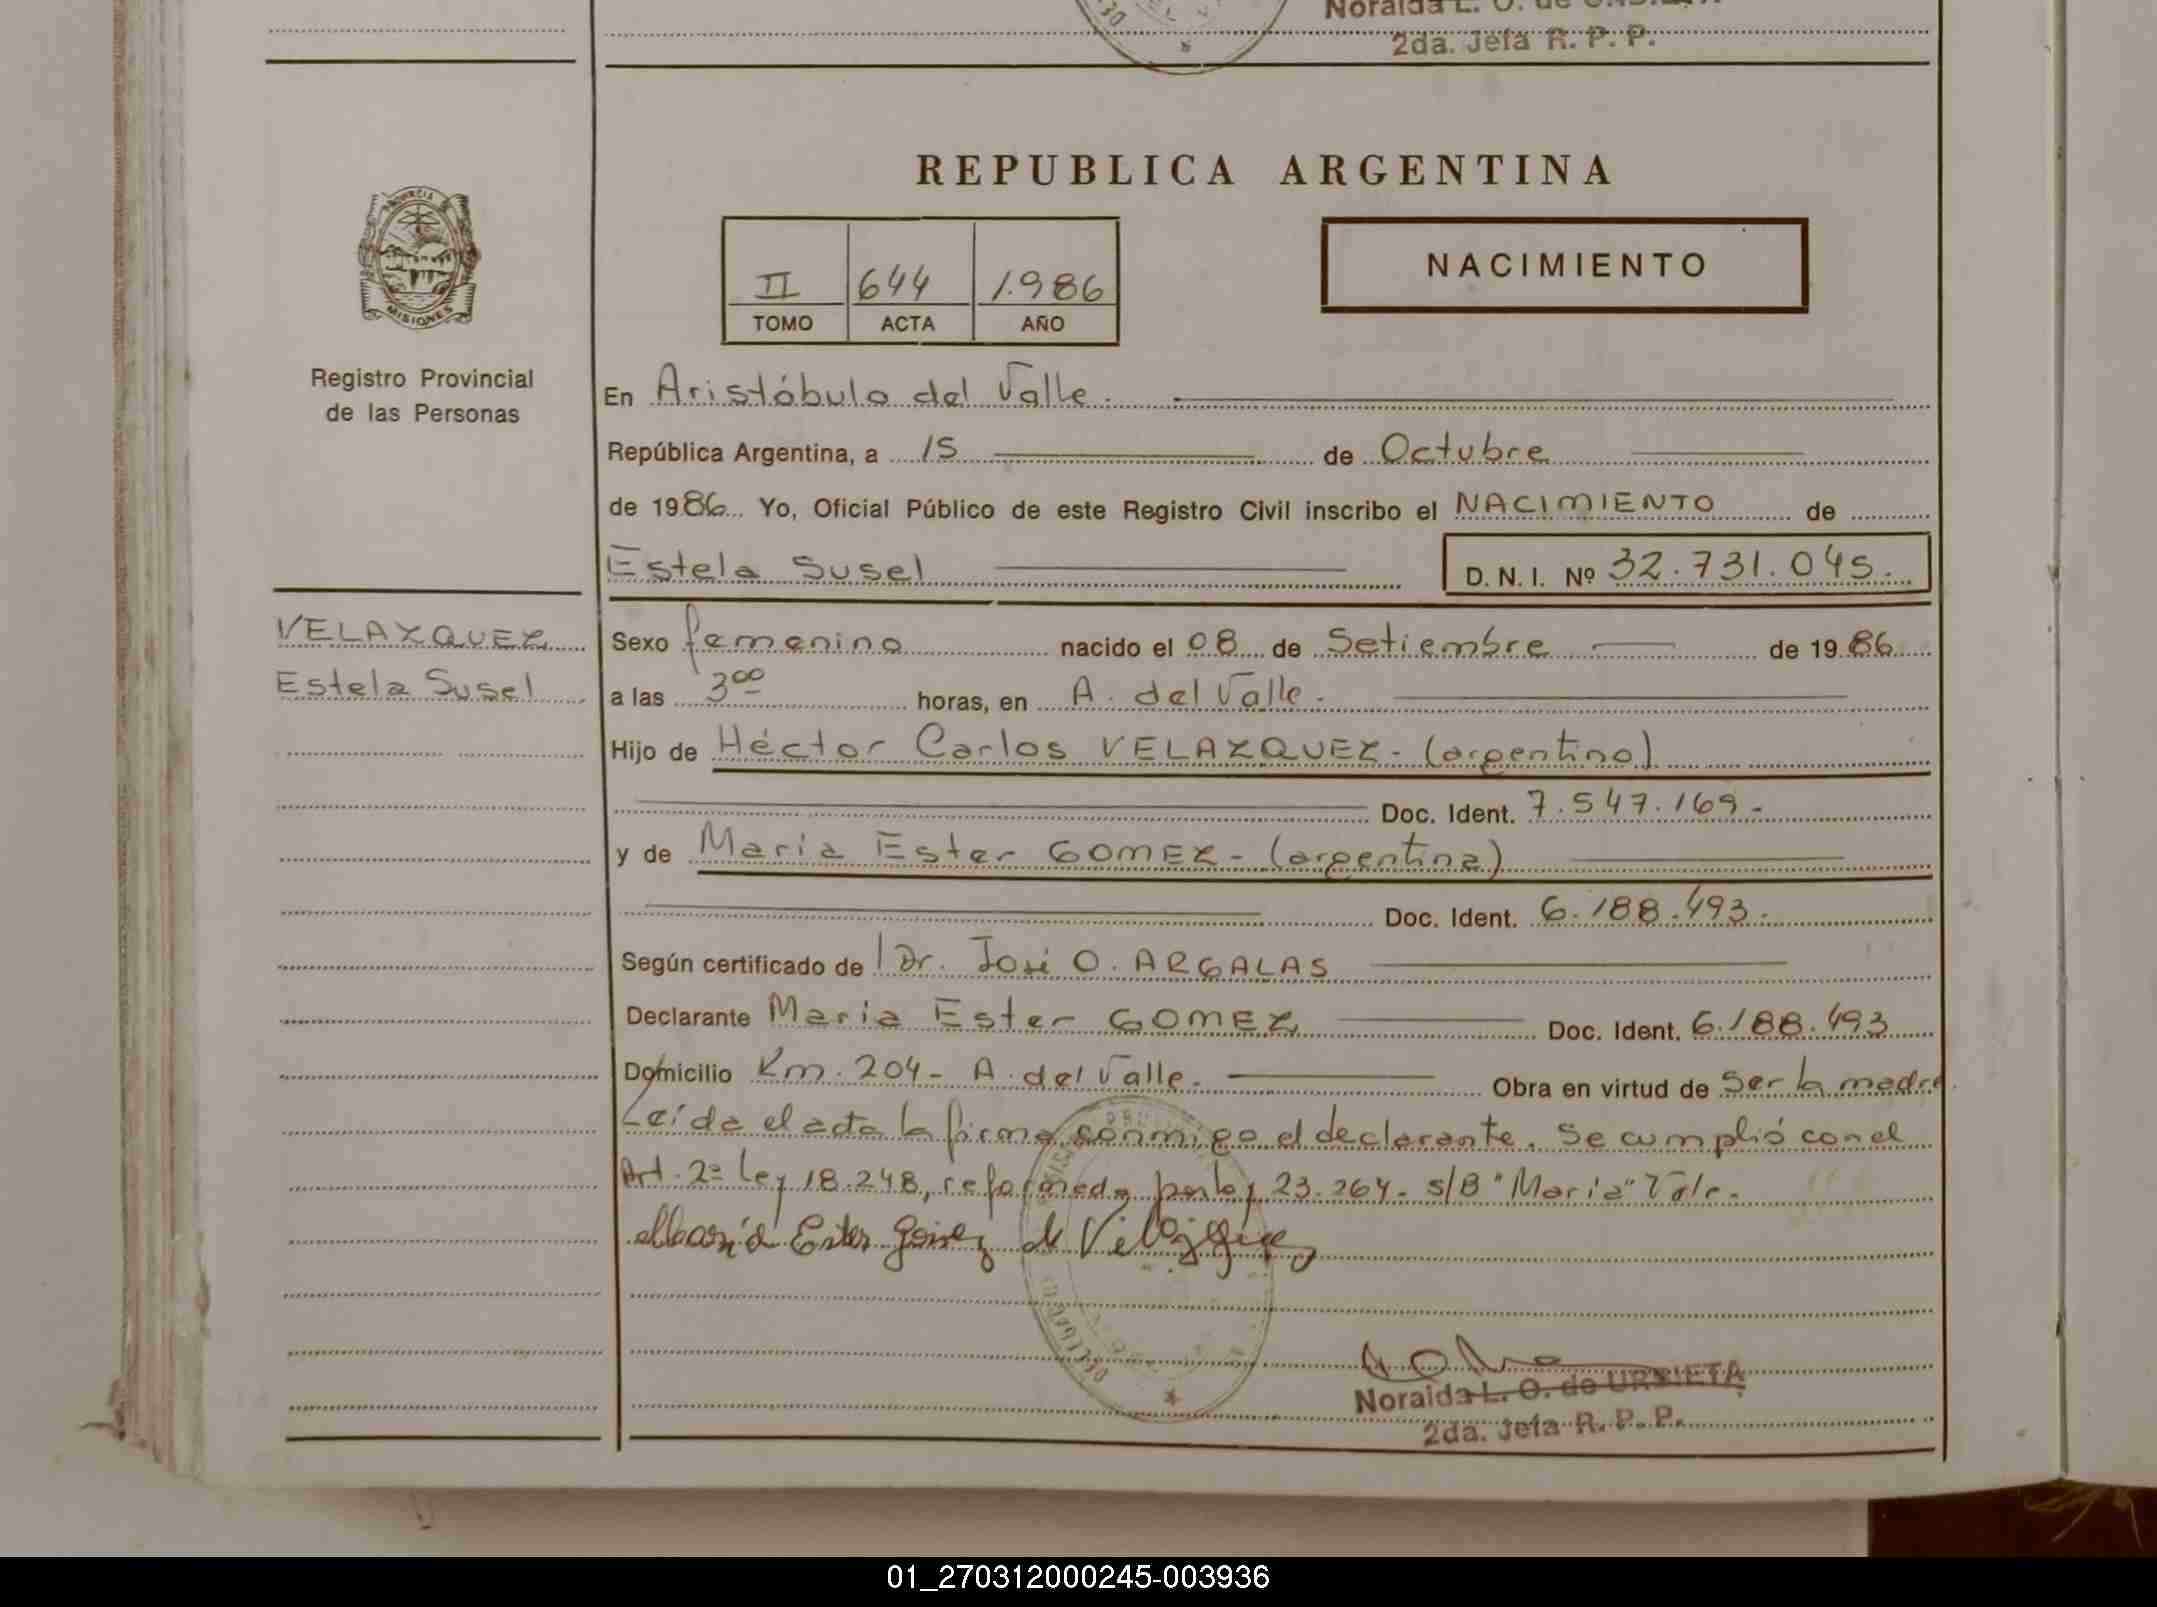 2da. Jefa R. P. P.
REPUBLICA ARGENTINA
PROVINCIA DE
MISIONES
II 644 1.986
TOMO ACTA AÑO
NACIMIENTO
Registro Provincial
de las Personas
En Aristóbulo del Valle.
República Argentina, a 15 de Octubre
de 1986 Yo, Oficial Público de este Registro Civil inscribo el NACIMIENTO de
Estela Susel D. N. I. Nº 32.731.045.
VELAZQUEZ
Estela Susel
Sexo femenino nacido el 08 de Setiembre de 1986
a las 3⁰⁰ horas, en A. del Valle.
Hijo de Héctor Carlos VELAZQUEZ - (argentino)
Doc. Ident. 7.547.169-
y de María Ester GOMEZ - (argentina)
Doc. Ident. 6.188.493.
Según certificado de Dr. José O. ARGALAS
Declarante María Ester GOMEZ Doc. Ident. 6.188.493
Domicilio Km. 204 - A. del Valle. Obra en virtud de ser la madre.
Leída el acta la firma conmigo el declarante. Se cumplió con el
Art. 2º Ley 18.248, reformada por ley 23.264. s/B "María" Vale.
María Ester Gomez de Velazquez
Noraida L. O. de URRIETA
2da. Jefa R. P. P.
01_270312000245-003936